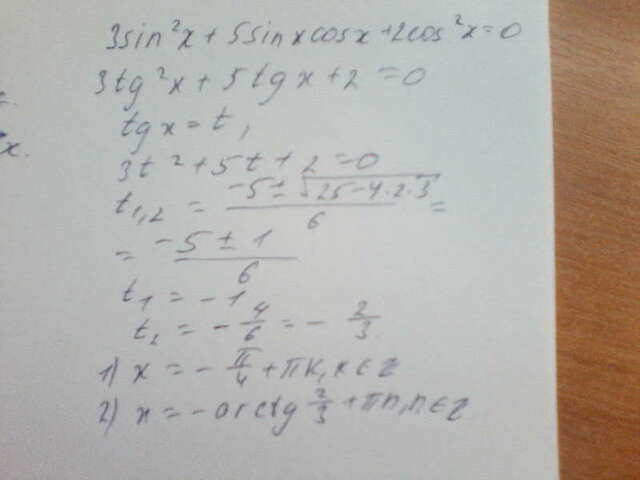 3sin²x + 5sinxcosx + 2cos²x = 0
3tg²x + 5tgx + 2 = 0
tgx = t,
3t² + 5t + 2 = 0
t₁,₂ = (-5 ± √(25 - 4·2·3))/6 =
= (-5 ± 1)/6
t₁ = -1
t₂ = -4/6 = -2/3
1) x = -π/4 + πk, k ∈ z
2) x = -arctg 2/3 + πn, n ∈ z
x.